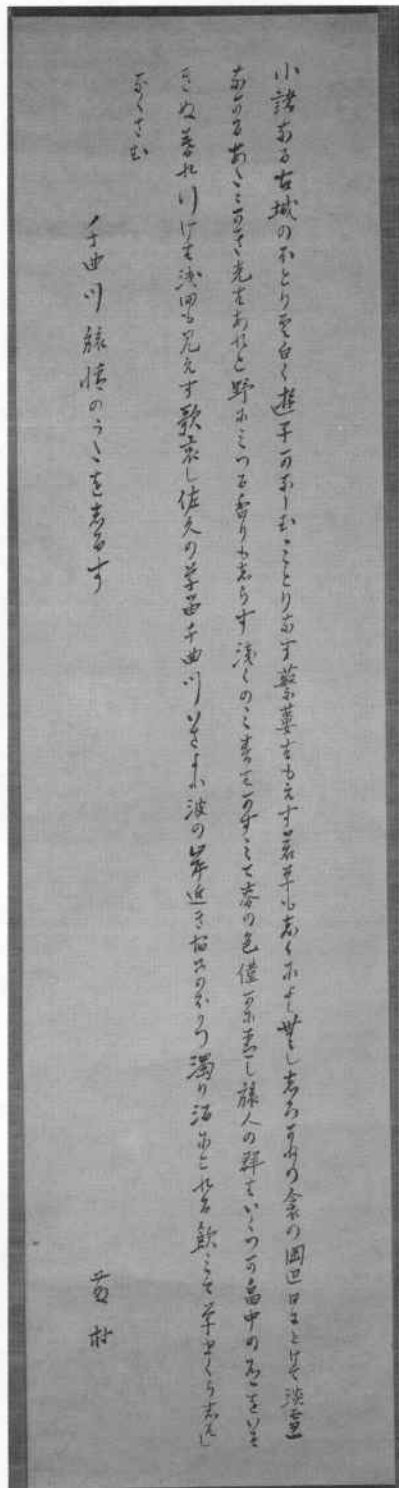 小諸なる古城のほとり雲白く遊子かなしむみとりなす蘩蔞はもえす若草も志くによし無し志ろかねの衾の岡辺日にとけて淡雪
なかるあたゝかき光はあれと野にみつる香りも志らす浅くのみ春はかすみて麥の色僅かに青し旅人の群はいくつか畠中の道をいそ
きぬ暮れ行けは浅間も見えす歌哀し佐久の草笛千曲川いさよふ波の岸近き宿にのほりつ濁り酒濁れる飲みて草まくら志はし
なくさむ
千曲川旅情のうたを志るす
藤村